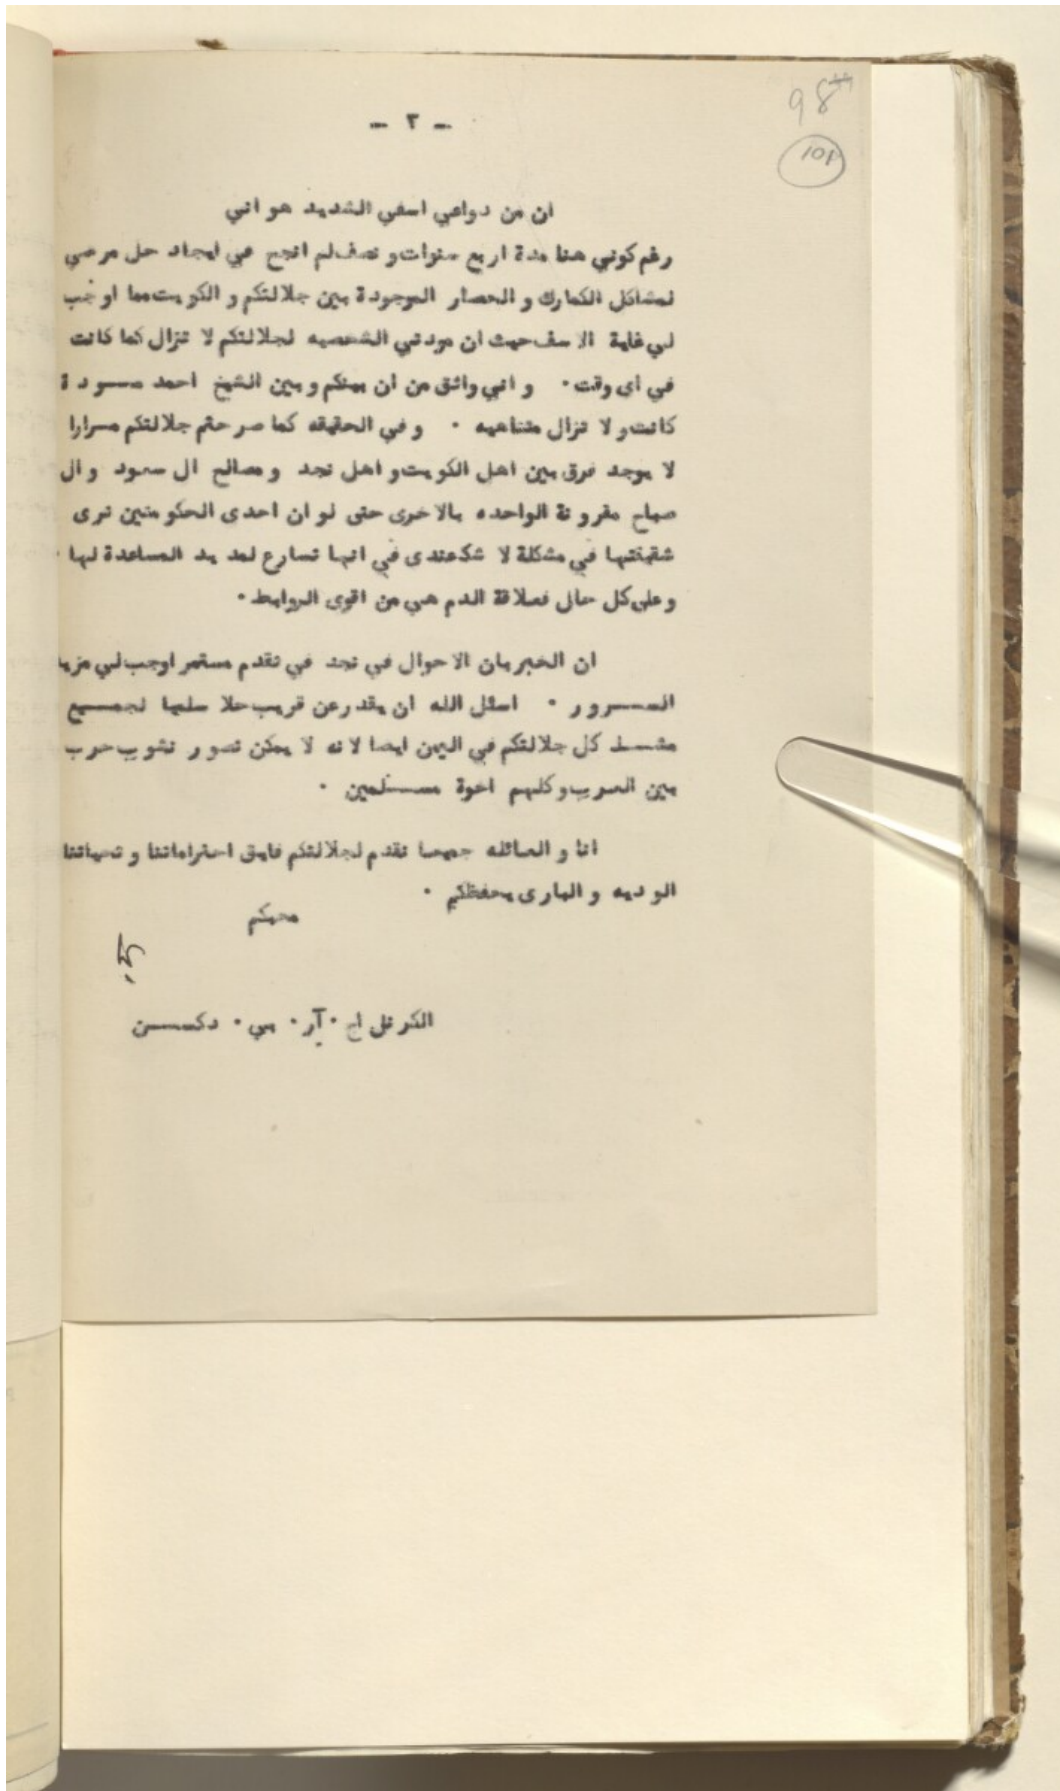 98
101
- ٢ -
ان من دواعي اسفي الشديد هو اني
رغم كوني هنا مدة اربع سنوات و نصف لم انجح في ايجاد حل مرضي
لمشاكل الكمارك و الحصار الموجودة بين جلالتكم و الكويت مما اوجب
لي غاية الاسف حيث ان مودتي الشخصيه لجلالتكم لا تزال كما كانت
في أى وقت ٠ و اني واثق من ان بينكم و بين الشيخ احمد مـــودة
كانت و لا تزال متناهيه ٠ و في الحقيقه كما صرحتم جلالتكم مـرارا
لا يوجد فرق بين اهل الكويت و اهل نجد و مصالح ال سعود و ال
صباح مقرونة الواحده بالاخرى حتى لو ان احدى الحكومتين ترى
شقيقتها في مشكلة لا شك عندى في انها تسارع لمد يد المساعدة لها ٠
و على كل حال فعلاقة الدم هي من اقوى الروابط ٠
ان الخبر بان الاحوال في نجد في تقدم مستمر اوجب لي مزيد
الســـرور ٠ اسئل الله ان يقدر عن قريب حلا سلميا لجمـــيع
مشـــاكل جلالتكم في اليمن ايضا لانه لا يمكن تصور نشوب حرب
بين العرب و كلهم اخوة مســـلمين ٠
انا و العائله جميعا نقدم لجلالتكم فايق احتراماتنا و تحياتنا
الوديه و البارى يحفظكم ٠
محبكم
الكرنل اج ٠ آر ٠ بي ٠ دكســـن